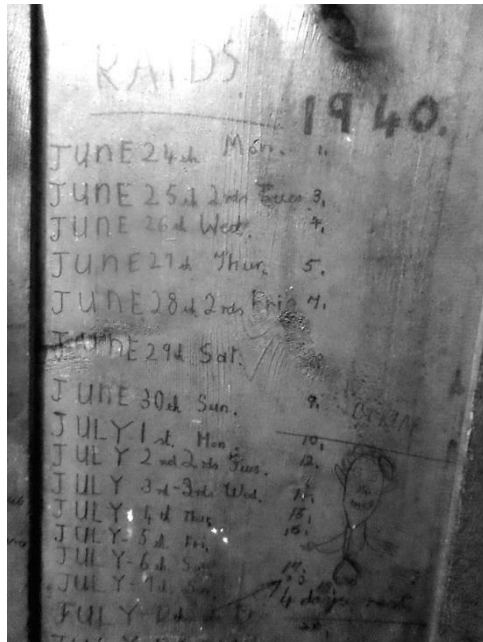 RAIDS
1940.
JUNE 24th Mon. 1.
JUNE 25th 2rds Tues 3.
JUNE 26th Wed. 4.
JUNE 27th Thur. 5.
JUNE 28th 2rds Fri 7.
JUNE 29th Sat.
JUNE 30th Sun. 9.
JULY 1st. Mon 10.
JULY 2nd 2rds Tues. 12.
JULY 3rd-3rds Wed.
JULY 4th Thur. 15.
JULY-5th Fri. 16.
JULY-6th 17.
JULY-
4 days rest
JULY